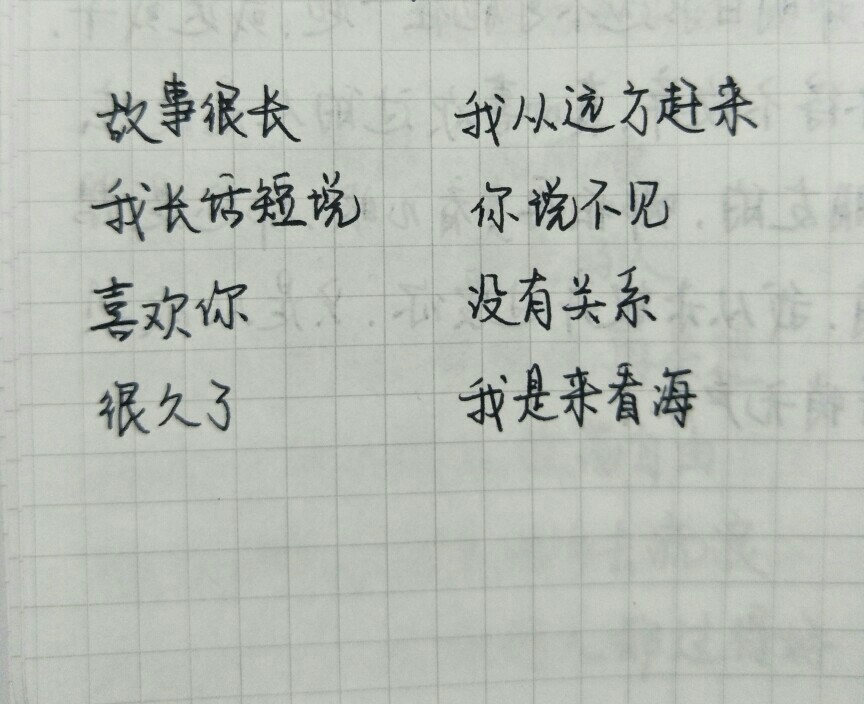 故事很长
我长话短说
喜欢你
很久了
我从远方赶来
你说不见
没有关系
我是来看海